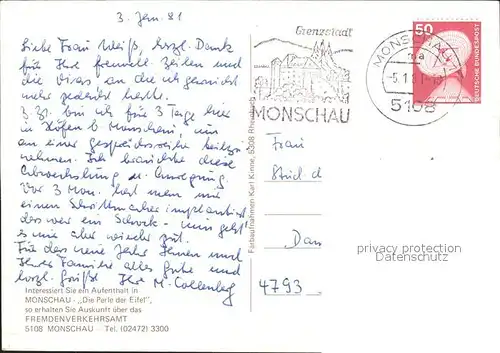 3. Jan. 81
Liebe Frau Weiß, herzl. Dank
für Ihre freundl. Zeilen und
die Dias an die ich garnicht
mehr gedacht hatte.
Z. Zt. bin ich für 3 Tage hier
in Höfen b. Monschau, um
an einer Gesprächsreihe teilzu-
nehmen. Ich brauchte diese
Abwechslung u. Anregung.
Vor 3 Mon. hat man mir
einen Schrittmacher implantiert
das war ein Schock - nun geht
es mir aber wieder gut.
Für das neue Jahr Ihnen und
Ihrer Familie alles Gute und
herzl. Grüße Ihre M.
Interessiert Sie ein Aufenthalt in
MONSCHAU - „Die Perle der Eifel",
so erhalten Sie Auskunft über das
FREMDENVERKEHRSAMT
5108 MONSCHAU Tel. (02472) 3300
Farbaufnahmen Karl Kinne, 5308 Rheinbach
Grenzstadt
MONSCHAU
MONSCHAU 1
5108
50
DEUTSCHE BUNDESPOST
Frau
4793
privacy protection
Datenschutz